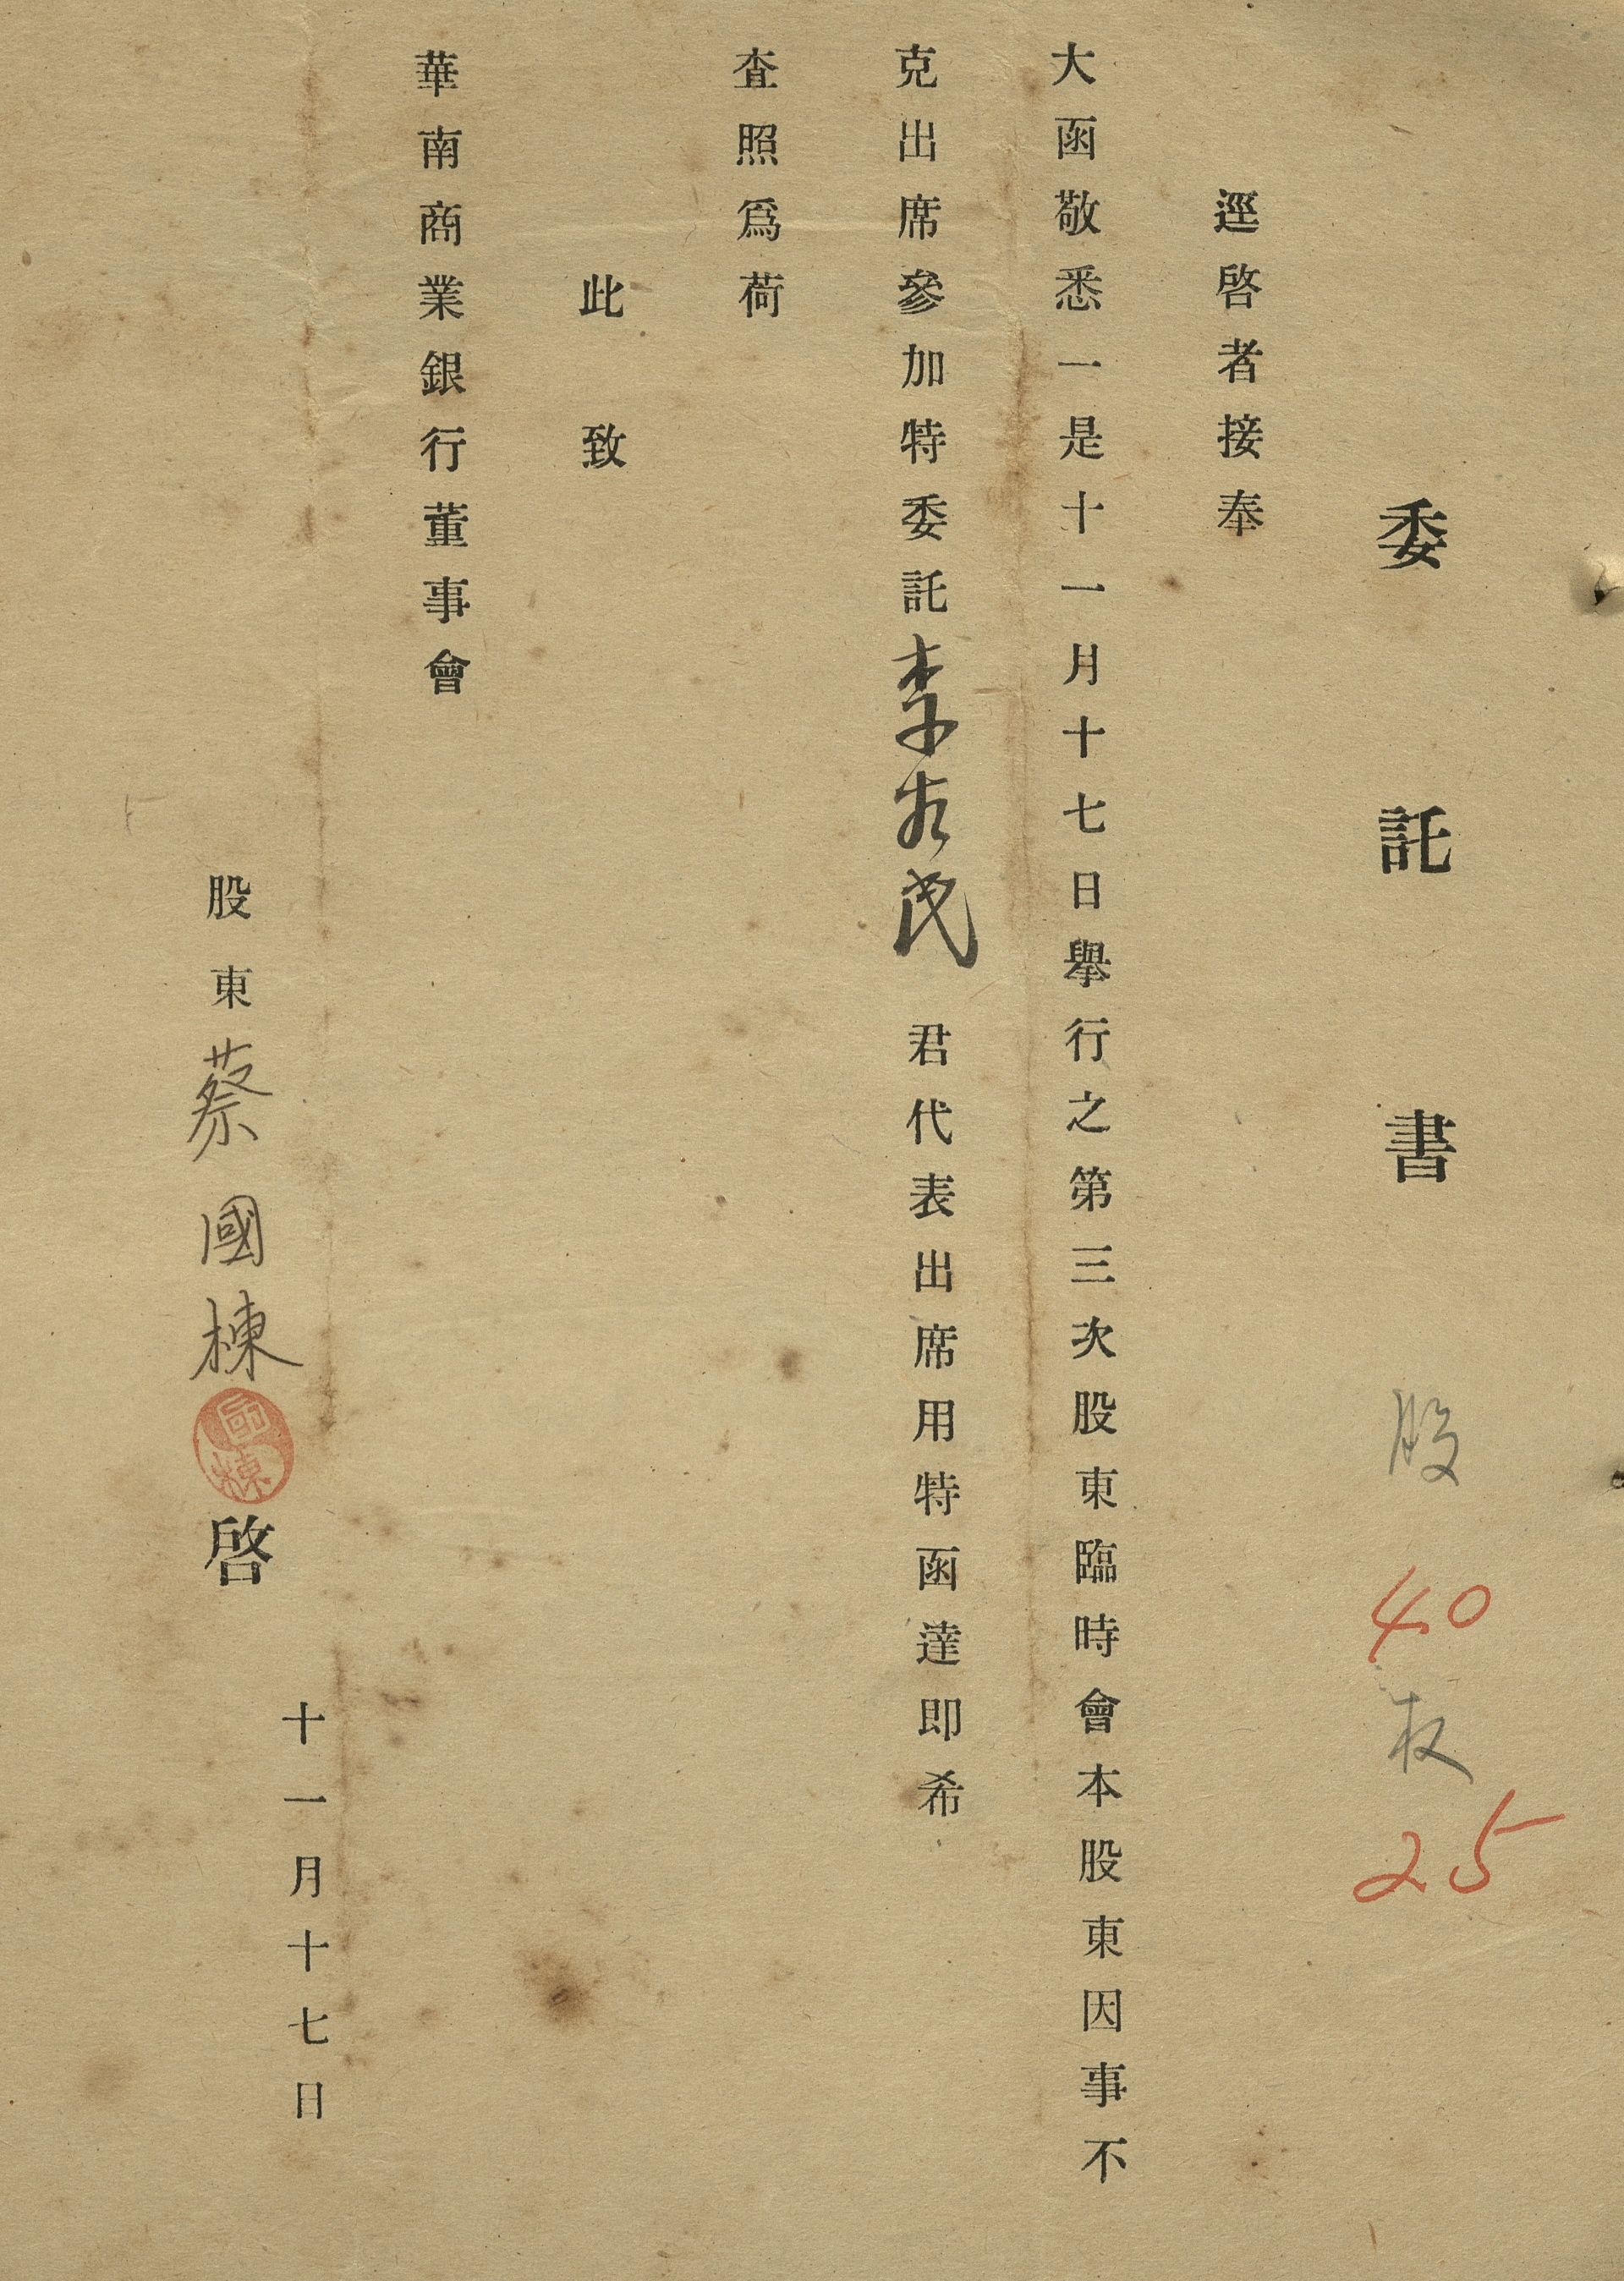 委託書
股 40 权 25
逕啓者接奉
大函敬悉一是十一月十七日舉行之第三次股東臨時會本股東因事不
克出席參加特委託李 民 君代表出席用特函達即希
查照爲荷
此致
華南商業銀行董事會
股東 蔡國棟 啓
國棟
十一月十七日